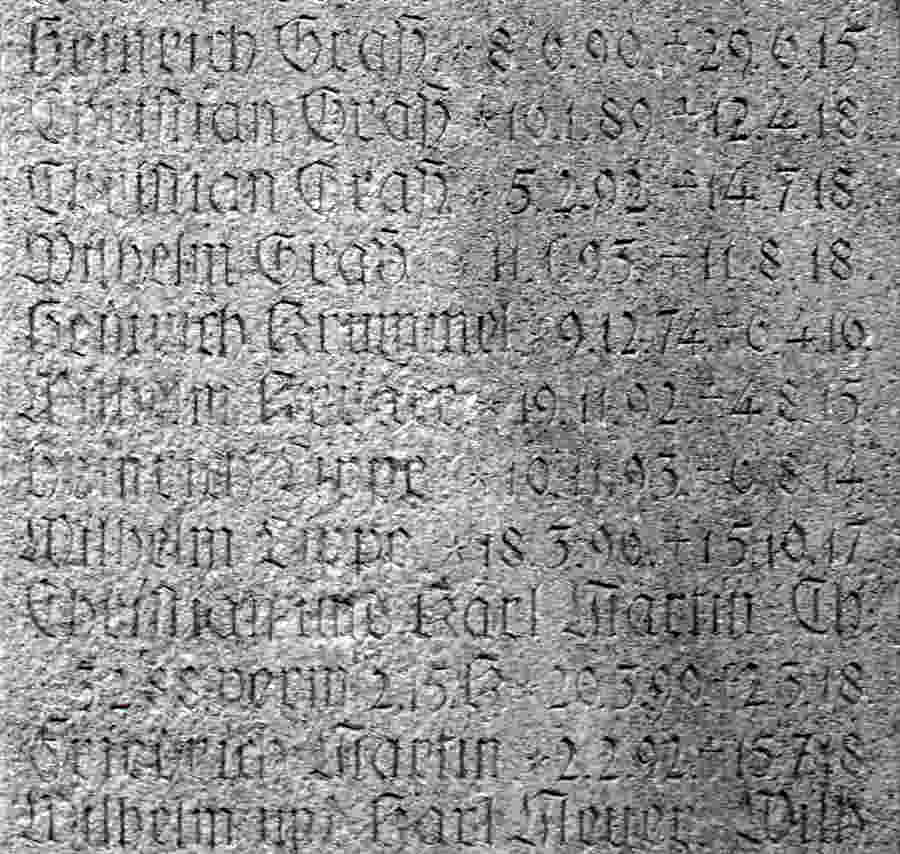 Heinrich Graß * 8.6.90 + 29.6.15
Christian Graß * 10.1.89 + 12.4.18
Christian Graß * 5.2.92 + 14.7.18
Wilhelm Graß * 11. 93 + 11.8.18
Heinrich Krummel * 9.12.74 + 6.4.16
Wilhelm * 19.11.92 + 4.8.15
Heinrich Lippe * 10.11.93 + 6.8.14
Wilhelm Lippe * 18.3.90 + 15.10.17
Christian und Karl Martin Ch
verm K * 20.3.99 + 2.3.18
Friedrich Martin * 2.2.92 + 15.7.18
Wilhelm und Karl Meyer Wilh